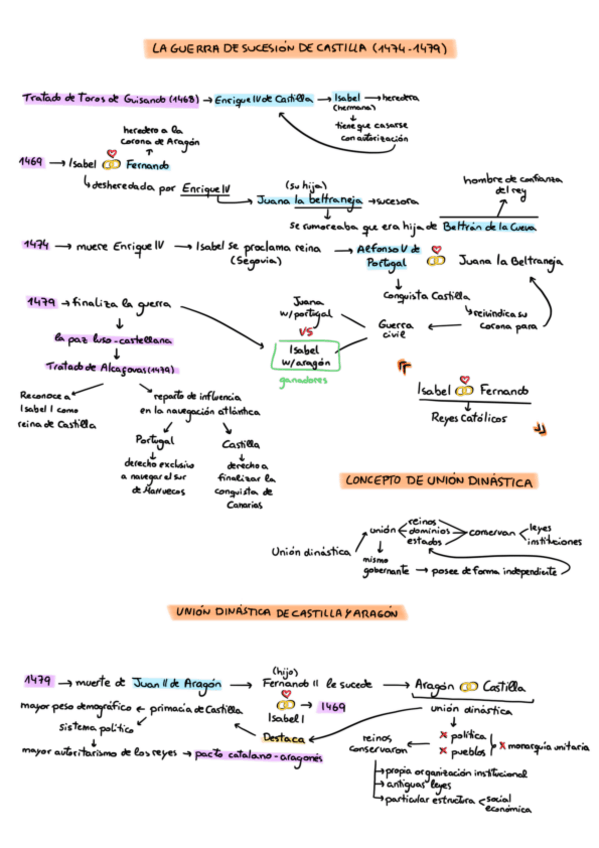 LA GUERRA DE SUCESIÓN DE CASTILLA (1474-1479)
Tratado de Toros de Guisando (1468) → Enrique IV de Castilla → Isabel → heredera
(hermana)
tiene que casarse
con autorización
heredero a la
corona de Aragón
1469 → Isabel Fernando
desheredada por Enrique IV
(su hija)
Juana la beltraneja → sucesora
se rumoreaba que era hija de Beltrán de la Cueva
hombre de confianza
del rey
1474 → muere Enrique IV → Isabel se proclama reina
(Segovia)
→ Alfonso V de
Portugal
Juana la Beltraneja
Conquista Castilla
reivindica su
corona para
Guerra
civil
Juana
w/portugal
VS
Isabel
w/aragón
ganadores
1479 → finaliza la guerra
la paz luso-castellana
Tratado de Alcaçovas (1479)
Reconoce a
Isabel I como
reina de Castilla
reparto de influencia
en la navegación atlántica
Portugal
derecho exclusivo
a navegar el sur
de Marruecos
Castilla
derecho a
finalizar la
conquista de
Canarias
Isabel Fernando
Reyes Católicos
CONCEPTO DE UNIÓN DINÁSTICA
Unión dinástica
unión
reinos
dominios
estados
conservan
leyes
instituciones
mismo
gobernante → posee de forma independiente
UNIÓN DINÁSTICA DE CASTILLA Y ARAGÓN
1479 → muerte de Juan II de Aragón →
(hijo)
Fernando II le sucede → Aragón Castilla
→ 1469
Isabel I
unión dinástica
x política
x pueblos
x monarquía unitaria
reinos
conservaron
propia organización institucional
antiguas leyes
particular estructura
social
económica
Destaca
mayor peso demográfico ← primacía de Castilla
sistema político
mayor autoritarismo de los reyes → pacto catalano-aragonés